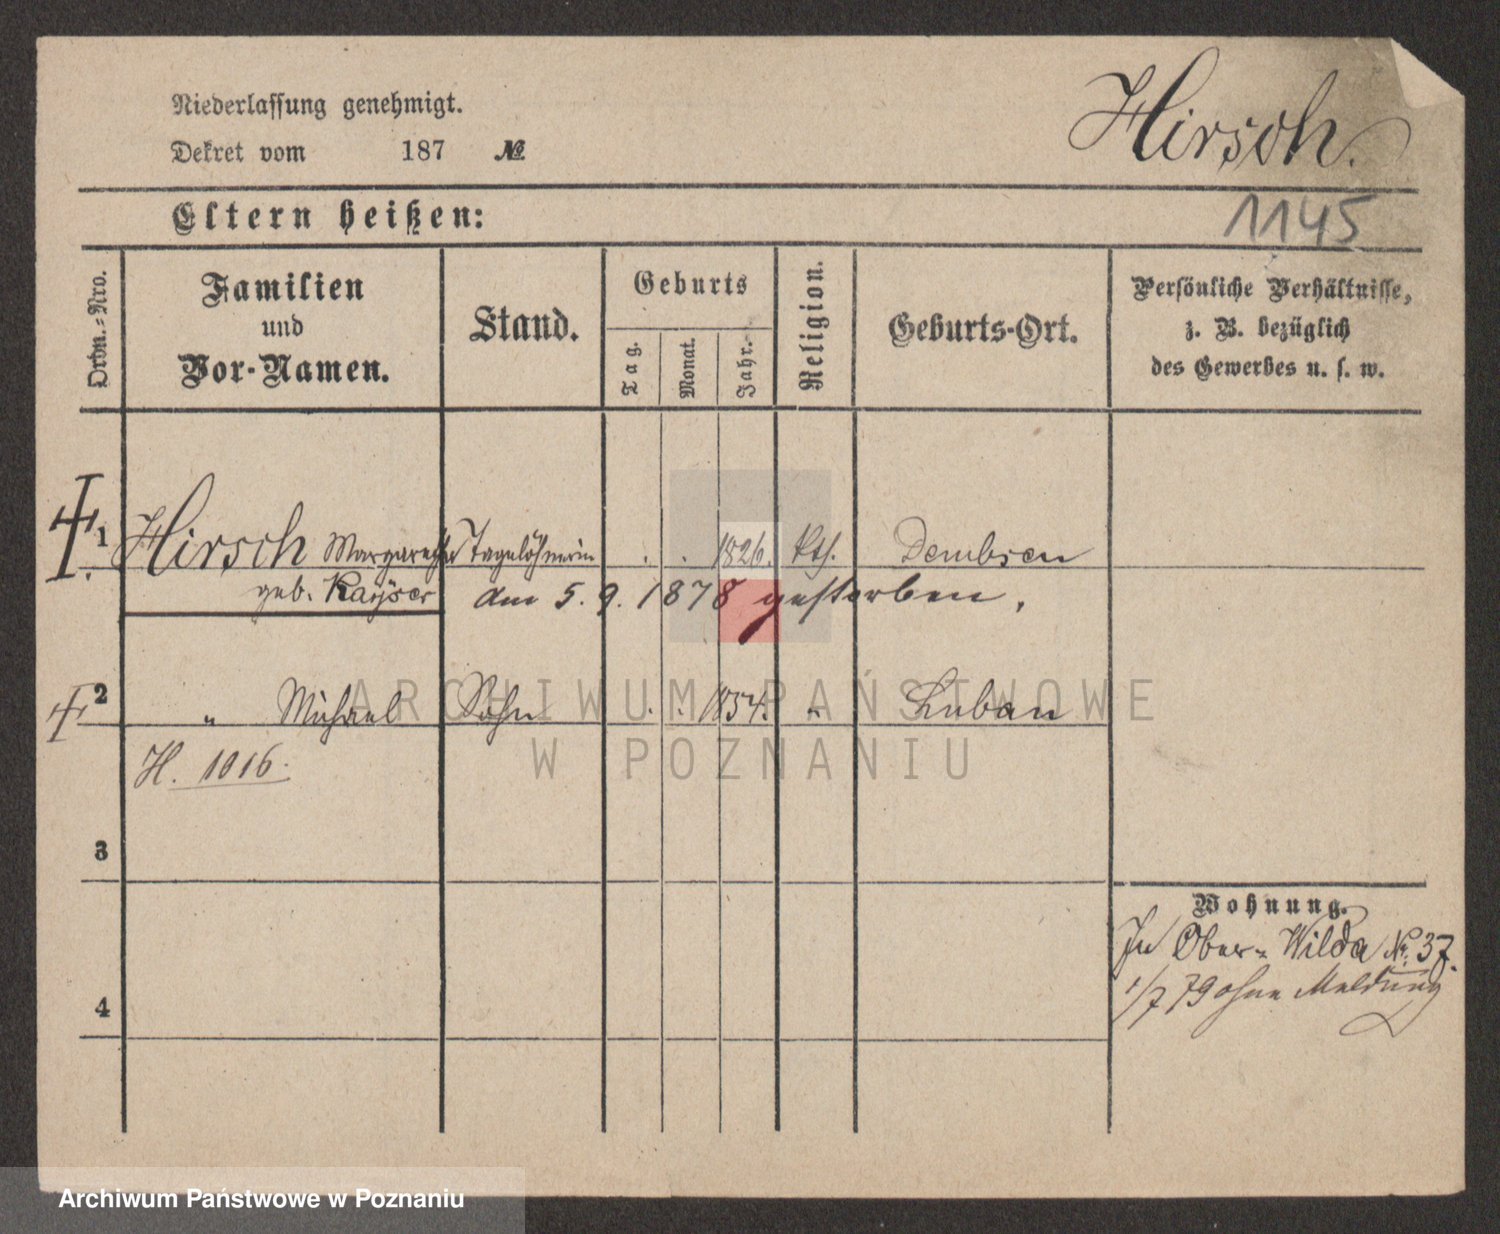 Niederlassung genehmigt.
Dekret vom 187 №
Hirsch.
Eltern heißen:
1145
Ordn.-Nro.
Familien
und
Vor-Namen.
Stand.
Geburts
Tag.
Monat.
Jahr.
Religion.
Geburts-Ort.
Persönliche Verhältnisse,
z. B. bezüglich
des Gewerbes u. s. w.
1 Hirsch Margarethe Tagelöhnerin . . 1826. kth. Dembsen
geb. Kayser am 5. 9. 1878 gestorben.
2 " Michael Sohn . . 1854. " Luban
H. 1016.
3
4
Wohnung.
In Ober-Wilda № 37.
1/7 79 ohne Meldung
ARCHIWUM PAŃSTWOWE
W POZNANIU
Archiwum Państwowe w Poznaniu